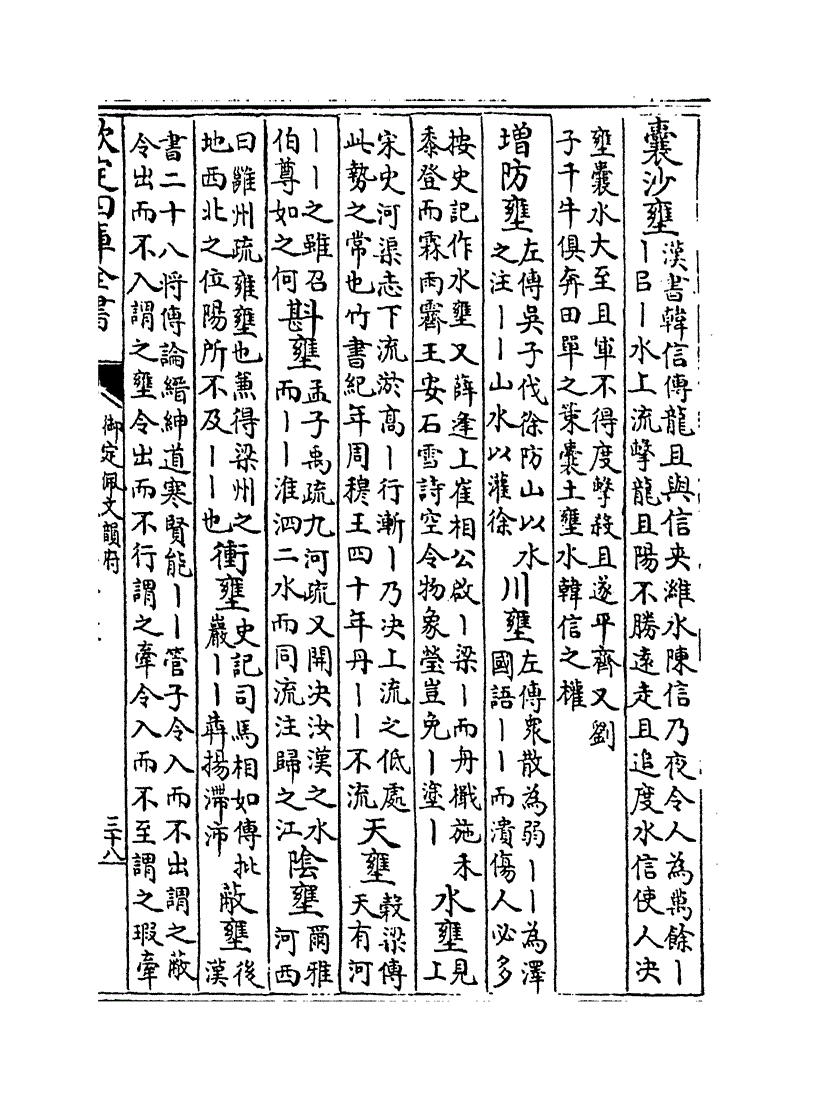 囊沙壅漢書韓信傳龍且與信夾濰水陳信乃夜令人為萬餘丨
丨㠯丨水上流擊龍且陽不勝遠走且追度水信使人决
壅囊水大至且軍不得度擊殺且遂平齊又劉
子千牛俱奔田單之策囊土壅水韓信之權
增防壅左傳吳子伐徐防山以水
之注丨丨山水以灌徐
川壅左傳衆散為弱丨丨為澤
國語丨丨而潰傷人必多
按史記作水壅又薛逢上崔相公啟丨梁丨而丹檝施未
黍登而霖雨霽王安石雪詩空令物象瑩豈免丨塗丨
水壅見
上
宋史河渠志下流淤高丨行漸丨乃决上流之低處
此勢之常也竹書紀年周穆王四十年丹丨丨不流
天壅榖梁傳
天有河
丨丨之雖召
伯尊如之何
斟壅孟子禹疏九河疏又開决汝漢之水
而丨丨淮泗二水而同流注歸之江
陰壅爾雅
河西
曰雝州疏雍壅也兼得梁州之
地西北之位陽所不及丨丨也
衝壅史記司馬相如傳批
巖丨丨犇揚滯沛
蔽壅後
漢
書二十八将傳論縉紳道塞賢能丨丨管子令入而不出謂之蔽
令出而不入謂之壅令出而不行謂之牽令入而不至謂之瑕牽
欽定四庫全書
御定佩文韻府
三十八